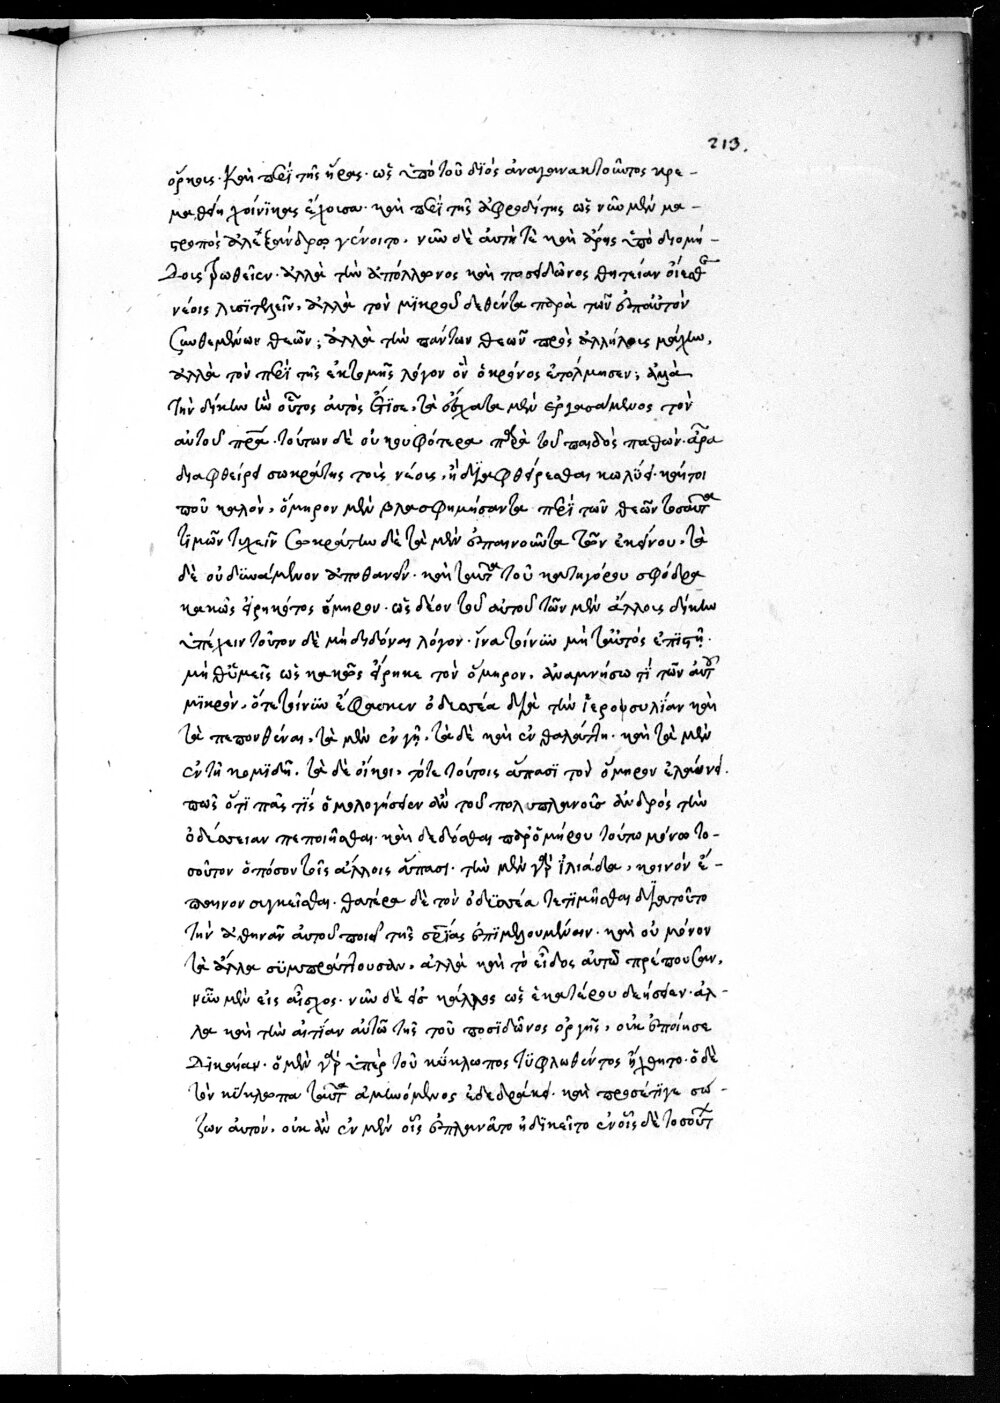 213.
ὅρκοις. Καὶ περὶ τῆς ἥρας. ὡς ὑπὸ τοῦ διός ἀγανακτοῦντος κρε-
μασθῆ χοίνικας ἔχουσα. καὶ περὶ τῆς ἀφροδίτης ὡς νῦν μὲν μα-
στροπὸς ἀλεξάνδρου γένοιτο. νῦν δὲ αὐτή τὲ καὶ ἄρης ὑπὸ διομή-
δους τρωθεῖεν. ἀλλὰ τὴν ἀπόλλωνος καὶ ποσειδῶνος θητείαν οἴεσθε
νέοις λυσιτελεῖν, ἀλλὰ τὸν μικροῦ δεθέντα παρὰ τῶν ἐπαὐτὸν
συνθεμένων θεῶν; ἀλλὰ τὴν πάντων θεῶν πρὸς ἀλλήλους μάχην,
ἀλλὰ τὸν περὶ τῆς ἐκτομῆς λόγον ὃν ὁ κρόνος ἐτόλμησεν; ἀλλὰ
τὴν δίκην ἣν οὗτος αὐτὸς ἔτισε, τὰ ἔσχατα μὲν ἐργασάμενος τὸν
αὑτοῦ πατέρα. τούτων δὲ οὐ κουφότερα παρὰ τοῦ παιδὸς παθών. ἆρα
διαφθείρει σωκράτης τοὺς νέους, ἢ διαφθείρεσθαι κωλύει. καίτοι
ποῦ καλὸν, ὅμηρον μὲν βλασφημήσαντα περὶ τῶν θεῶν τοσαῦτα
τιμῶν τυχεῖν σωκράτην δὲ τὰ μὲν ἐπαινοῦντα τῶν ἐκείνου, τὰ
δὲ οὐ δυνάμενον ἀποθανεῖν. καὶ ταῦτα τοῦ κατηγόρου σφόδρα
κακῶς εἰρηκότος ὅμηρον. ὡς δέον τοῦ αὐτοῦ τῶν μὲν ἄλλους δίκην
ὑπέχειν τοῦτον δὲ μὴ διδόναι λόγον. ἵνα τοίνυν μὴ ταὐτὸς ἐπιστῇ.
μὴ θὑμεῖς ὡς κακῶς εἴρηκε τὸν ὅμηρον, ἀναμνήσω τί τῶν αὐτοῦ
μικρὸν, ὅτε τοίνυν ἔφασκεν ὀδυσσέα διὰ τὴν ἱεροσυλίαν καὶ
τὰ πεπονθέναι, τὰ μὲν ἐν γῇ, τὰ δὲ καὶ ἐν θαλάττῃ. καὶ τὰ μὲν
ἐν τῇ κομιδῇ. τὰ δὲ οἴκοι, τότε τούτοις ἅπασι τὸν ὅμηρον ἐλαύνει.
πῶς ὅτι πᾶς τίς ὁμολογήσειεν ἂν τοῦ πολυπλανοῦς ἀνδρὸς τὴν
ὀδύσσειαν πεποιῆσθαι. καὶ δεδόσθαι παρὁμήρου τούτω μόνω το-
σοῦτον ὁπόσον τοῖς ἄλλοις ἅπασι. τὴν μὲν γὰρ ἰλιάδα, κοινὸν ἔ-
παινον συγκεῖσθαι. θατέρα δὲ τὸν ὀδυσσέα τετιμῆσθαι διατοῦτο
τὴν ἀθηνᾶν αὐτοῦ ποιεῖ τῆς σωτηρίας ἐπιμελουμένην. καὶ οὐ μόνον
τὰ ἄλλα συμπράττουσαν, ἀλλὰ καὶ τὸ εἶδος αὐτῶ τρέπουσαν,
νῦν μὲν εἰς αἶσχος. νῦν δὲ εἰς κάλλος ὡς ἑκατέρου δεήσειεν. ἀλ-
λα καὶ τὴν αἰτίαν αὐτῶ τῆς τοῦ ποσειδῶνος ὀργῆς, οὐκ ἐποίησε
δικαίαν. ὁ μὲν γὰρ ὑπὲρ τοῦ κύκλωπος τυφλωθέντος ἤχθητο. ὁ δὲ
τὸν κύκλωπα ταῦτα ἀμυνόμενος ἐδεδράκει. καὶ προσέτιγε σώ-
ζων αὑτόν. οὐκ ἂν ἐν μὲν οἷς ἐπλανᾶτο ἠδικεῖτο ἐν οἷς δὲ τοσοῦτ